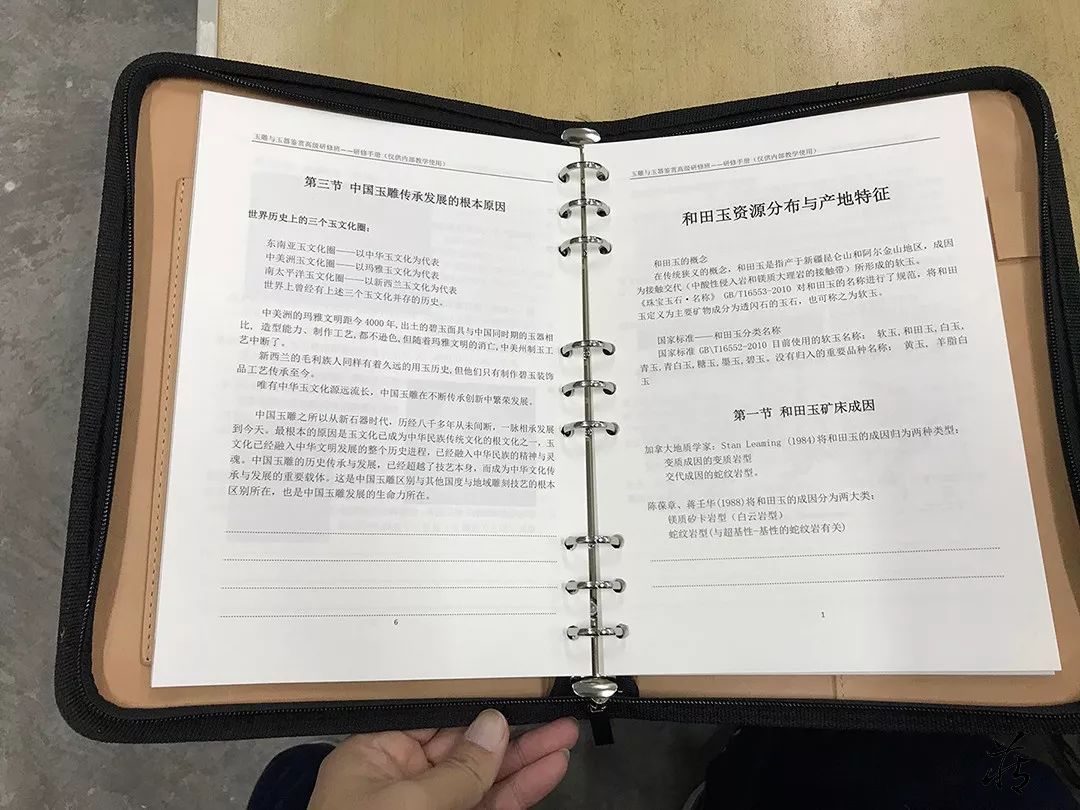 玉雕与玉器鉴赏高级研修班——研修手册（仅供内部教学使用）
第三节 中国玉雕传承发展的根本原因
世界历史上的三个玉文化圈：
东南亚玉文化圈——以中华玉文化为代表
中美洲玉文化圈——以玛雅玉文化为代表
南太平洋玉文化圈——以新西兰玉文化为代表
世界上曾经有上述三个玉文化并存的历史。
中美洲的玛雅文明距今4000年,出土的碧玉面具与中国同时期的玉器相
比，造型能力、制作工艺,都不逊色,但随着玛雅文明的消亡,中美州制玉工
艺中断了。
新西兰的毛利族人同样有着久远的用玉历史,但他们只有制作碧玉装饰
品工艺传承至今。
唯有中华玉文化源远流长，中国玉雕在不断传承创新中繁荣发展。
中国玉雕之所以从新石器时代，历经八千多年从未间断，一脉相承发展
到今天。最根本的原因是玉文化已成为中华民族传统文化的根文化之一，玉
文化已经融入中华文明发展的整个历史进程，已经融入中华民族的精神与灵
魂。中国玉雕的历史传承与发展，已经超越了技艺本身，而成为中华文化传
承与发展的重要载体。这是中国玉雕区别与其他国度与地域雕刻技艺的根本
区别所在，也是中国玉雕发展的生命力所在。
6
玉雕与玉器鉴赏高级研修班——研修手册（仅供内部教学使用）
和田玉资源分布与产地特征
和田玉的概念
在传统狭义的概念，和田玉是指产于新疆昆仑山和阿尔金山地区，成因
为接触交代（中酸性侵入岩和镁质大理岩的接触带）所形成的软玉。
《珠宝玉石·名称》GB/T16553-2010 对和田玉的名称进行了规范，将和田
玉定义为主要矿物成分为透闪石的玉石，也可称之为软玉。
国家标准——和田玉分类名称
国家标准 GB\T16552-2010 目前使用的软玉名称： 软玉,和田玉,白玉,
青玉,青白玉,糖玉,墨玉,碧玉。没有归入的重要品种名称： 黄玉, 羊脂白
玉
第一节 和田玉矿床成因
加拿大地质学家：Stan Leaming (1984)将和田玉的成因归为两种类型：
变质成因的变质岩型
交代成因的蛇纹岩型。
陈葆章、蒋壬华(1988)将和田玉的成因分为两大类：
镁质矽卡岩型（白云岩型）
蛇纹岩型(与超基性-基性的蛇纹岩有关)
1
蒋